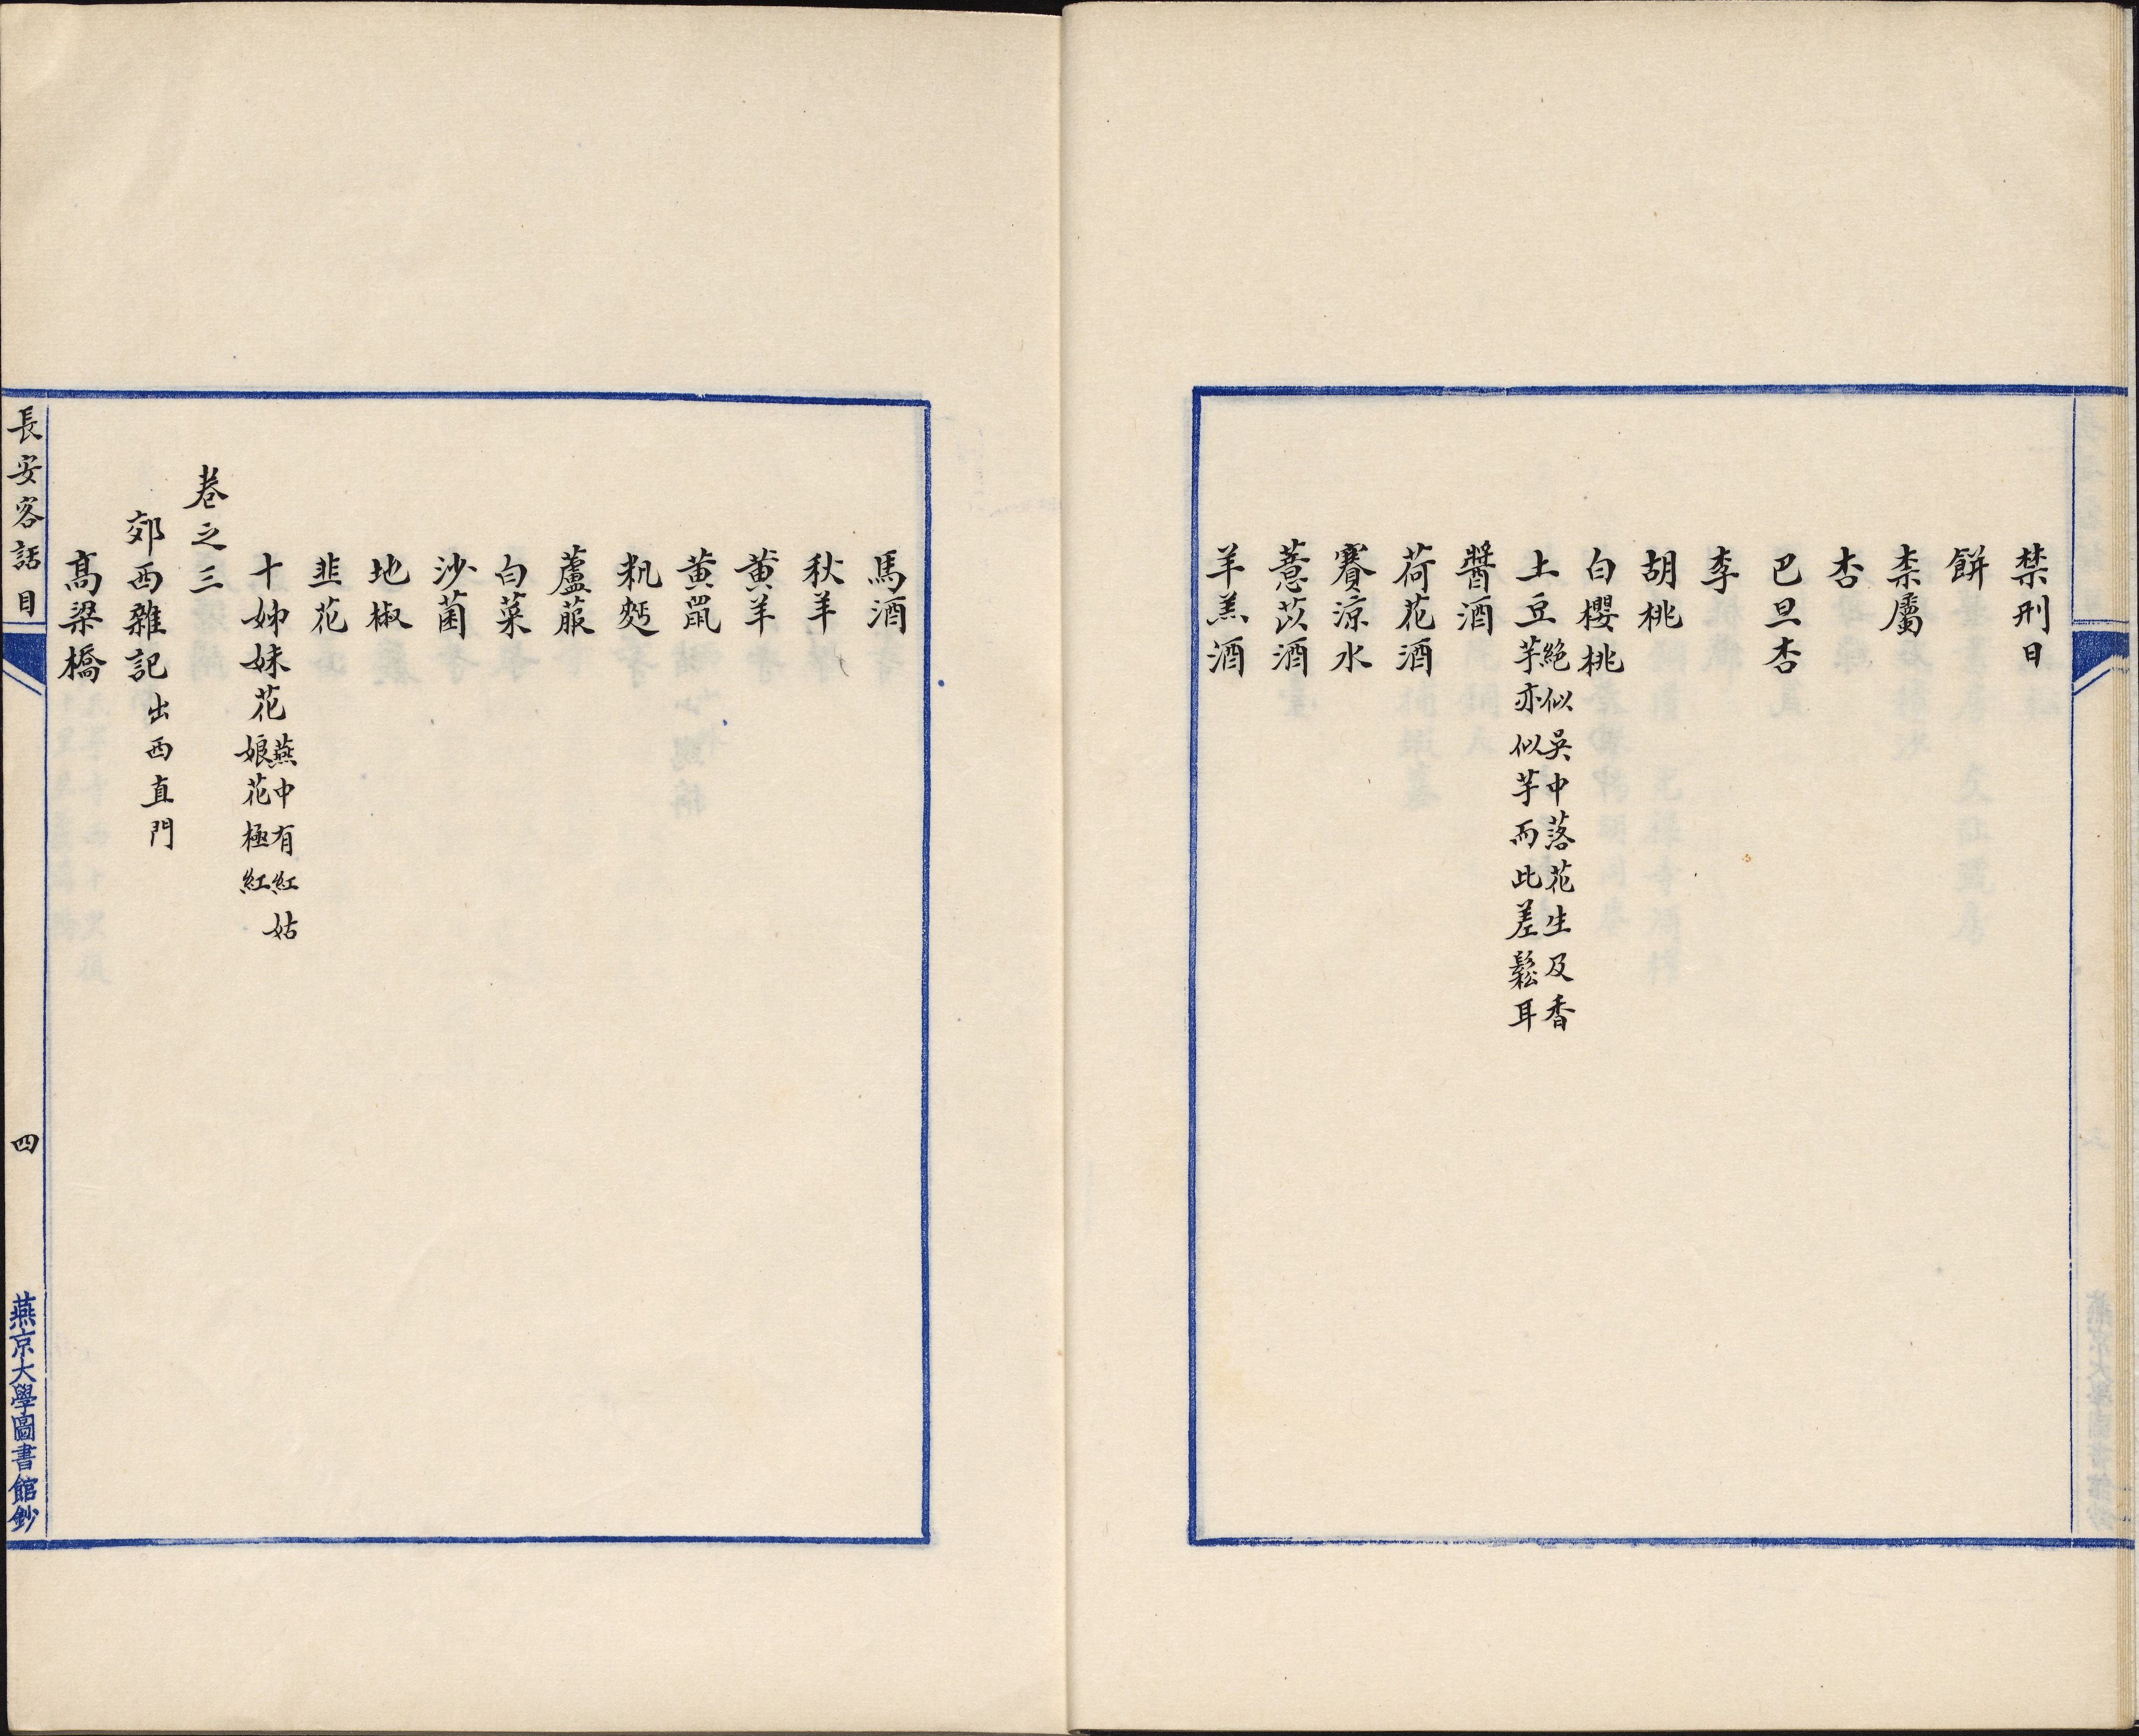 禁刑日
餅
柰屬
杏
巴旦杏
李
胡桃
白櫻桃
土豆絕似吳中落花生及香
芋亦似芋而此差鬆耳
醬酒
荷花酒
賽涼水
薏苡酒
羊羔酒
馬酒
秋羊
黄羊
黄鼠
籸麫
蘆菔
白菜
沙菌
地椒
韭花
十姊妹花燕中有紅姑
娘花極紅
卷之三
郊西雜記出西直門
髙梁橋
長安客話 目
四
燕京大學圖書館鈔